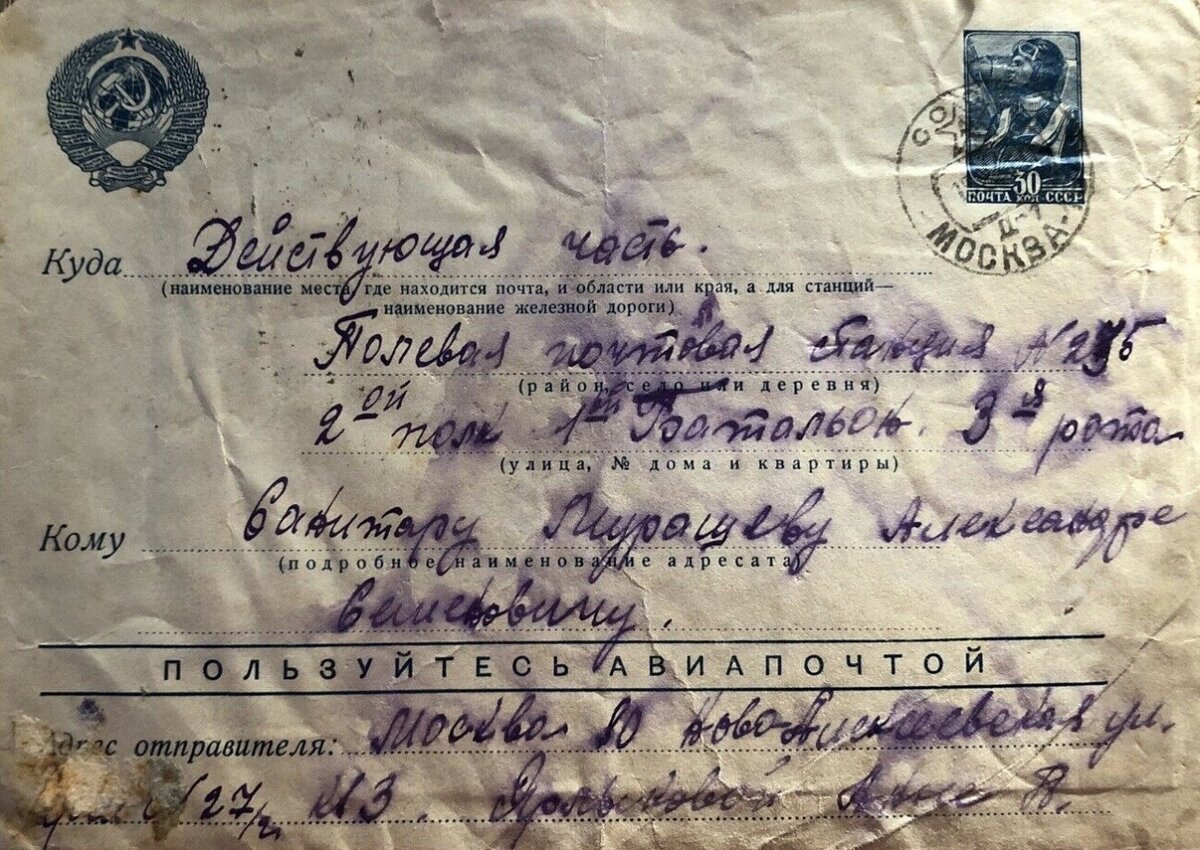 30
ПОЧТА КОП. СССР
МОСКВА
Куда Действующая часть.
(наименование места, где находится почта, и области или края, а для станций—
наименование железной дороги)
Полевая почтовая станция N
(район, село или деревня)
2ой полк 1ый Батальон. 3я рота
(улица, № дома и квартиры)
Кому Санитару Мурашеву Александре
(подробное наименование адресата)
Семеновичу.
ПОЛЬЗУЙТЕСЬ АВИАПОЧТОЙ
Адрес отправителя: Москва 80 Ново Алексеевская ул.
N 27/2 кв 3. Анне В.